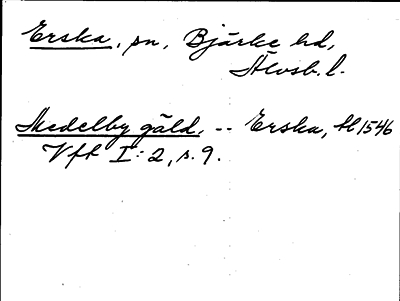 Erska, sn, Bjärke hd,
Älvsb. l.
Medelby gäld, -- Erska, tl 1546
Vft I:2, s. 9.